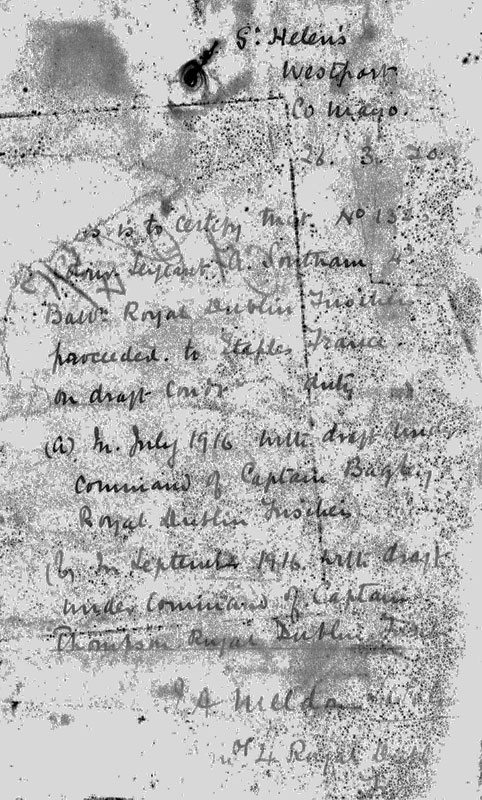 St Helen's
Westport
Co Mayo.
26. 3. 20
is is to certify that No 15
Sergeant A. Southam 4
Battn Royal Dublin Fusiliers
proceeded to Etaples France
on draft Condr duty
(A) In July 1916 with draft under
command of Captain Bagley
Royal Dublin Fusiliers
(B) In September 1916 with draft
under command of Captain
Thompson Royal Dublin Fus
J A Meldon
4 Royal Dubl